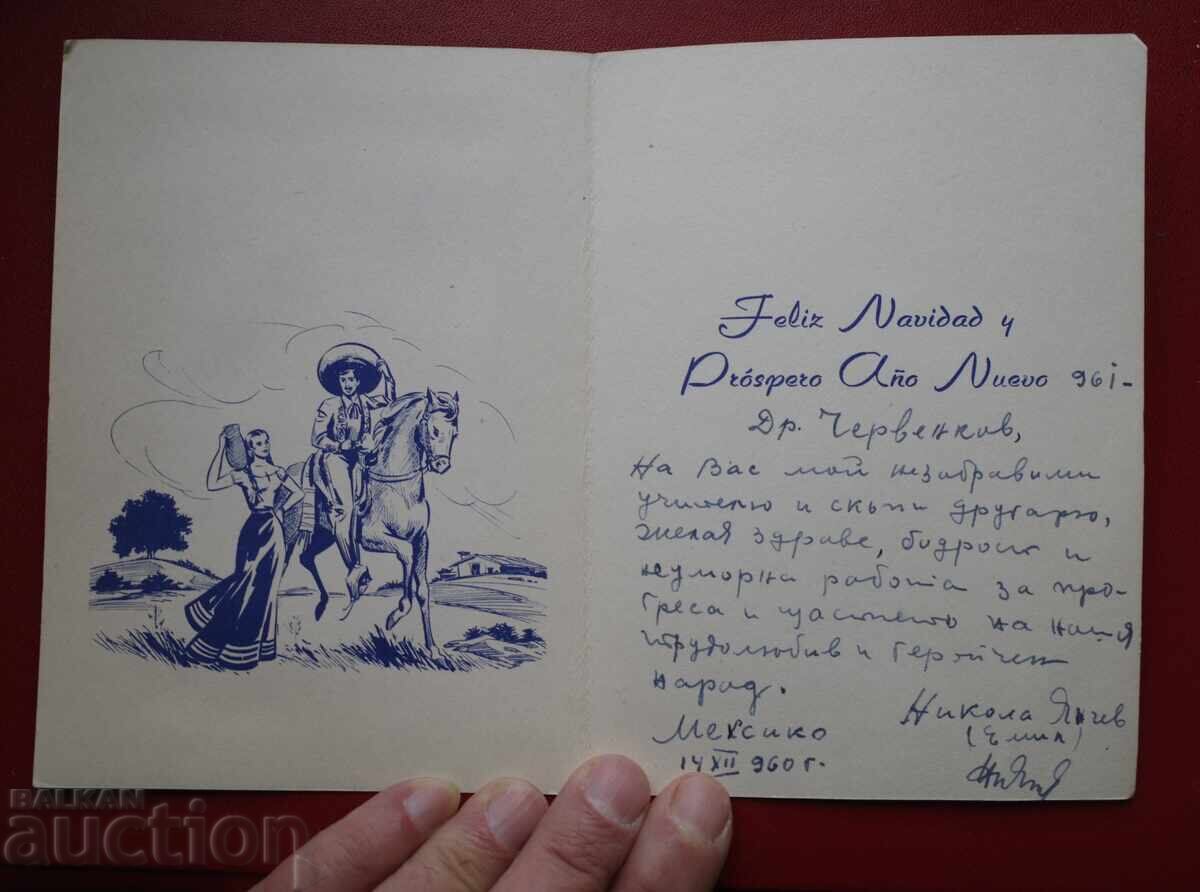 Feliz Navidad y
Próspero Año Nuevo 961-
Др. Червенков,
На Вас мой незабравими
учителю и скъпи другарю,
желая здраве, бодрост и
неуморна работа за про-
греса и щастието на нашия
трудолюбив и геройчен
народ.
Никола Янчев
(Емил)
Мексико
14 XII 960 г.
BALKAN
auction